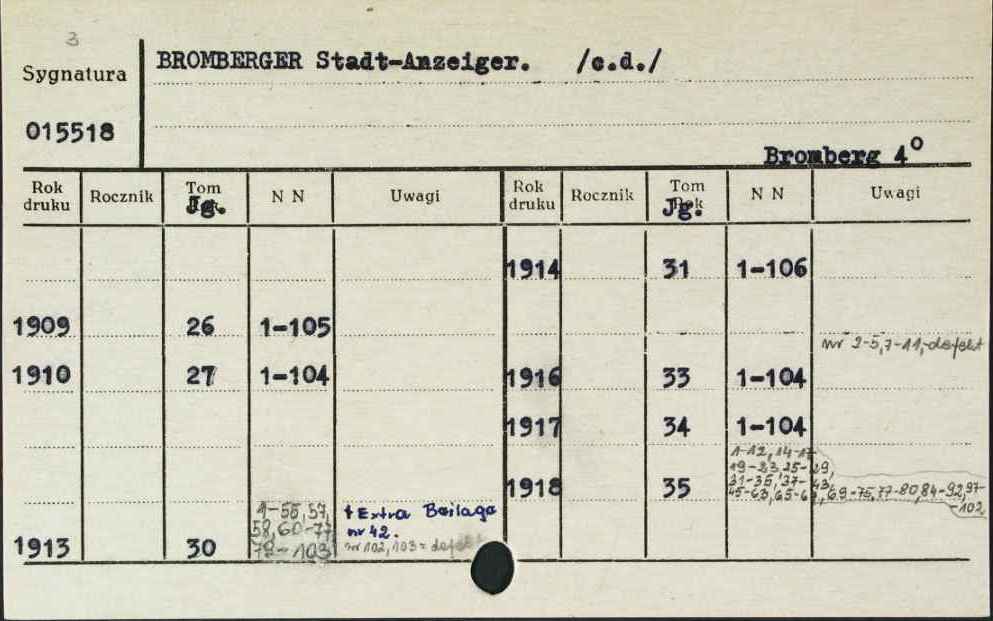 3
Sygnatura
BROMBERGER Stadt-Anzeiger. /c.d./
015518
Bromberg 4°
Rok druku Rocznik Tom Jg. N N Uwagi Rok druku Rocznik Tom Rok Jg. N N Uwagi
1914 31 1-106
1909 26 1-105
nr 2-5,7-11,-defekt
1910 27 1-104 1916 33 1-104
1917 34 1-104
1-12, 14-17
19-23,25-29,
31-35,37-43,
1918 35 45-63,65-67,69-75,77-80,84-92,97-
-102
1-55,57,
58,60-77
79-103
+ Extra Beilage
nr 42.
nr 102,103 = defekt
1913 30